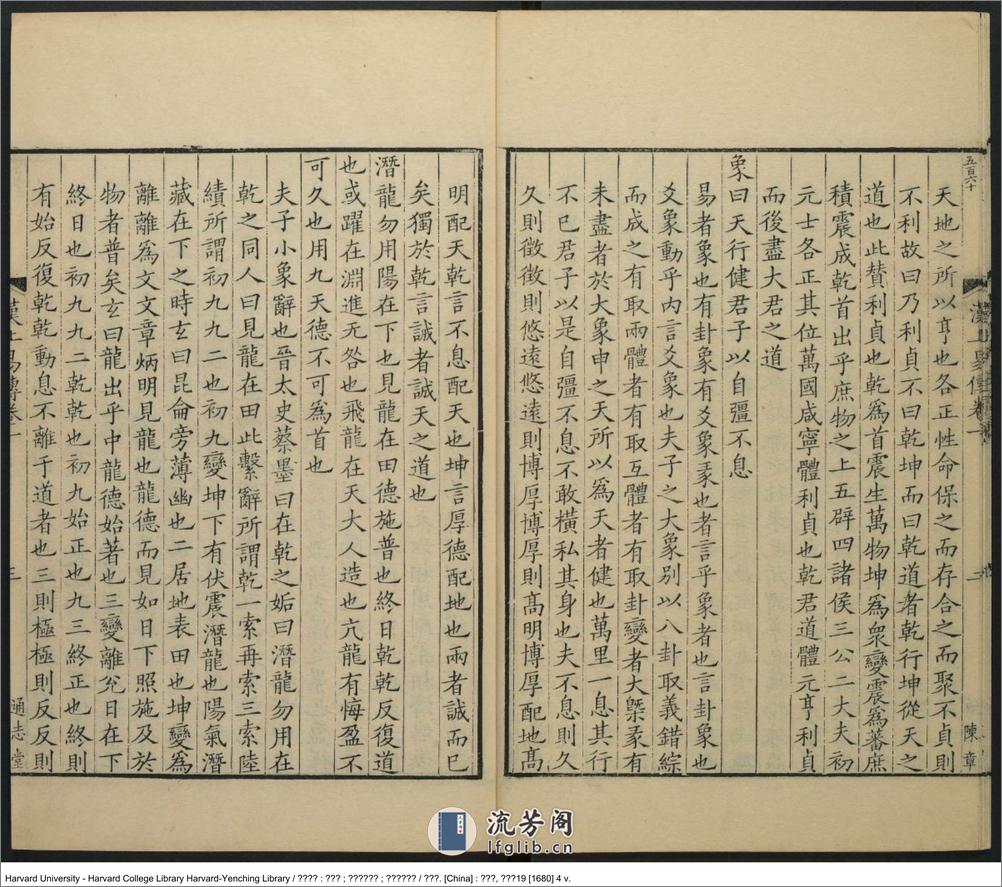 五百六十
天地之所以亨也各正性命保之而存合之而聚不貞則
不利故曰乃利貞不曰乾坤而曰乾道者乾行坤從天之
道也此贊利貞也乾為首震生萬物坤為衆變震為蕃庶
積震成乾首出乎庶物之上五辟四諸侯三公二大夫初
元士各正其位萬國咸寧體利貞也乾君道體元亨利貞
而後盡大君之道
象曰天行健君子以自彊不息
易者象也有卦象有爻象彖也者言乎象者也言卦象也
爻象動乎內言爻象也夫子之大象別以八卦取義錯綜
而成之有取兩體者有取互體者有取卦變者大槩彖有
未盡者於大象申之天所以為天者健也萬里一息其行
不已君子以是自彊不息不敢橫私其身也夫不息則久
久則徵徵則悠遠悠遠則博厚博厚則高明博厚配地高
陳章
明配天乾言不息配天也坤言厚德配地也兩者誠而已
矣獨於乾言誠者誠天之道也
潛龍勿用陽在下也見龍在田德施普也終日乾乾反復道
也或躍在淵進无咎也飛龍在天大人造也亢龍有悔盈不
可久也用九天德不可為首也
夫子小象辭也晉太史蔡墨曰在乾之姤曰潛龍勿用在
乾之同人曰見龍在田此繫辭所謂乾一索再索三索陸
績所謂初九九二也初九變坤下有伏震潛龍也陽氣潛
藏在下之時玄曰昆侖旁薄幽也二居地表田也坤變為
離離為文文章炳明見龍也龍德而見如日下照施及於
物者普矣玄曰龍出乎中龍德始著也三變離兊日在下
終日也初九九二乾乾也初九始正也九三終正也終則
有始反復乾乾動息不離于道者也三則極極則反反則
漢上易傳卷一
三
通志堂
流芳阁
lfglib.cn
Harvard University - Harvard College Library Harvard-Yenching Library / ???? : ??? ; ?????? ; ?????? / ???. [China] : ???, ???19 [1680] 4 v.